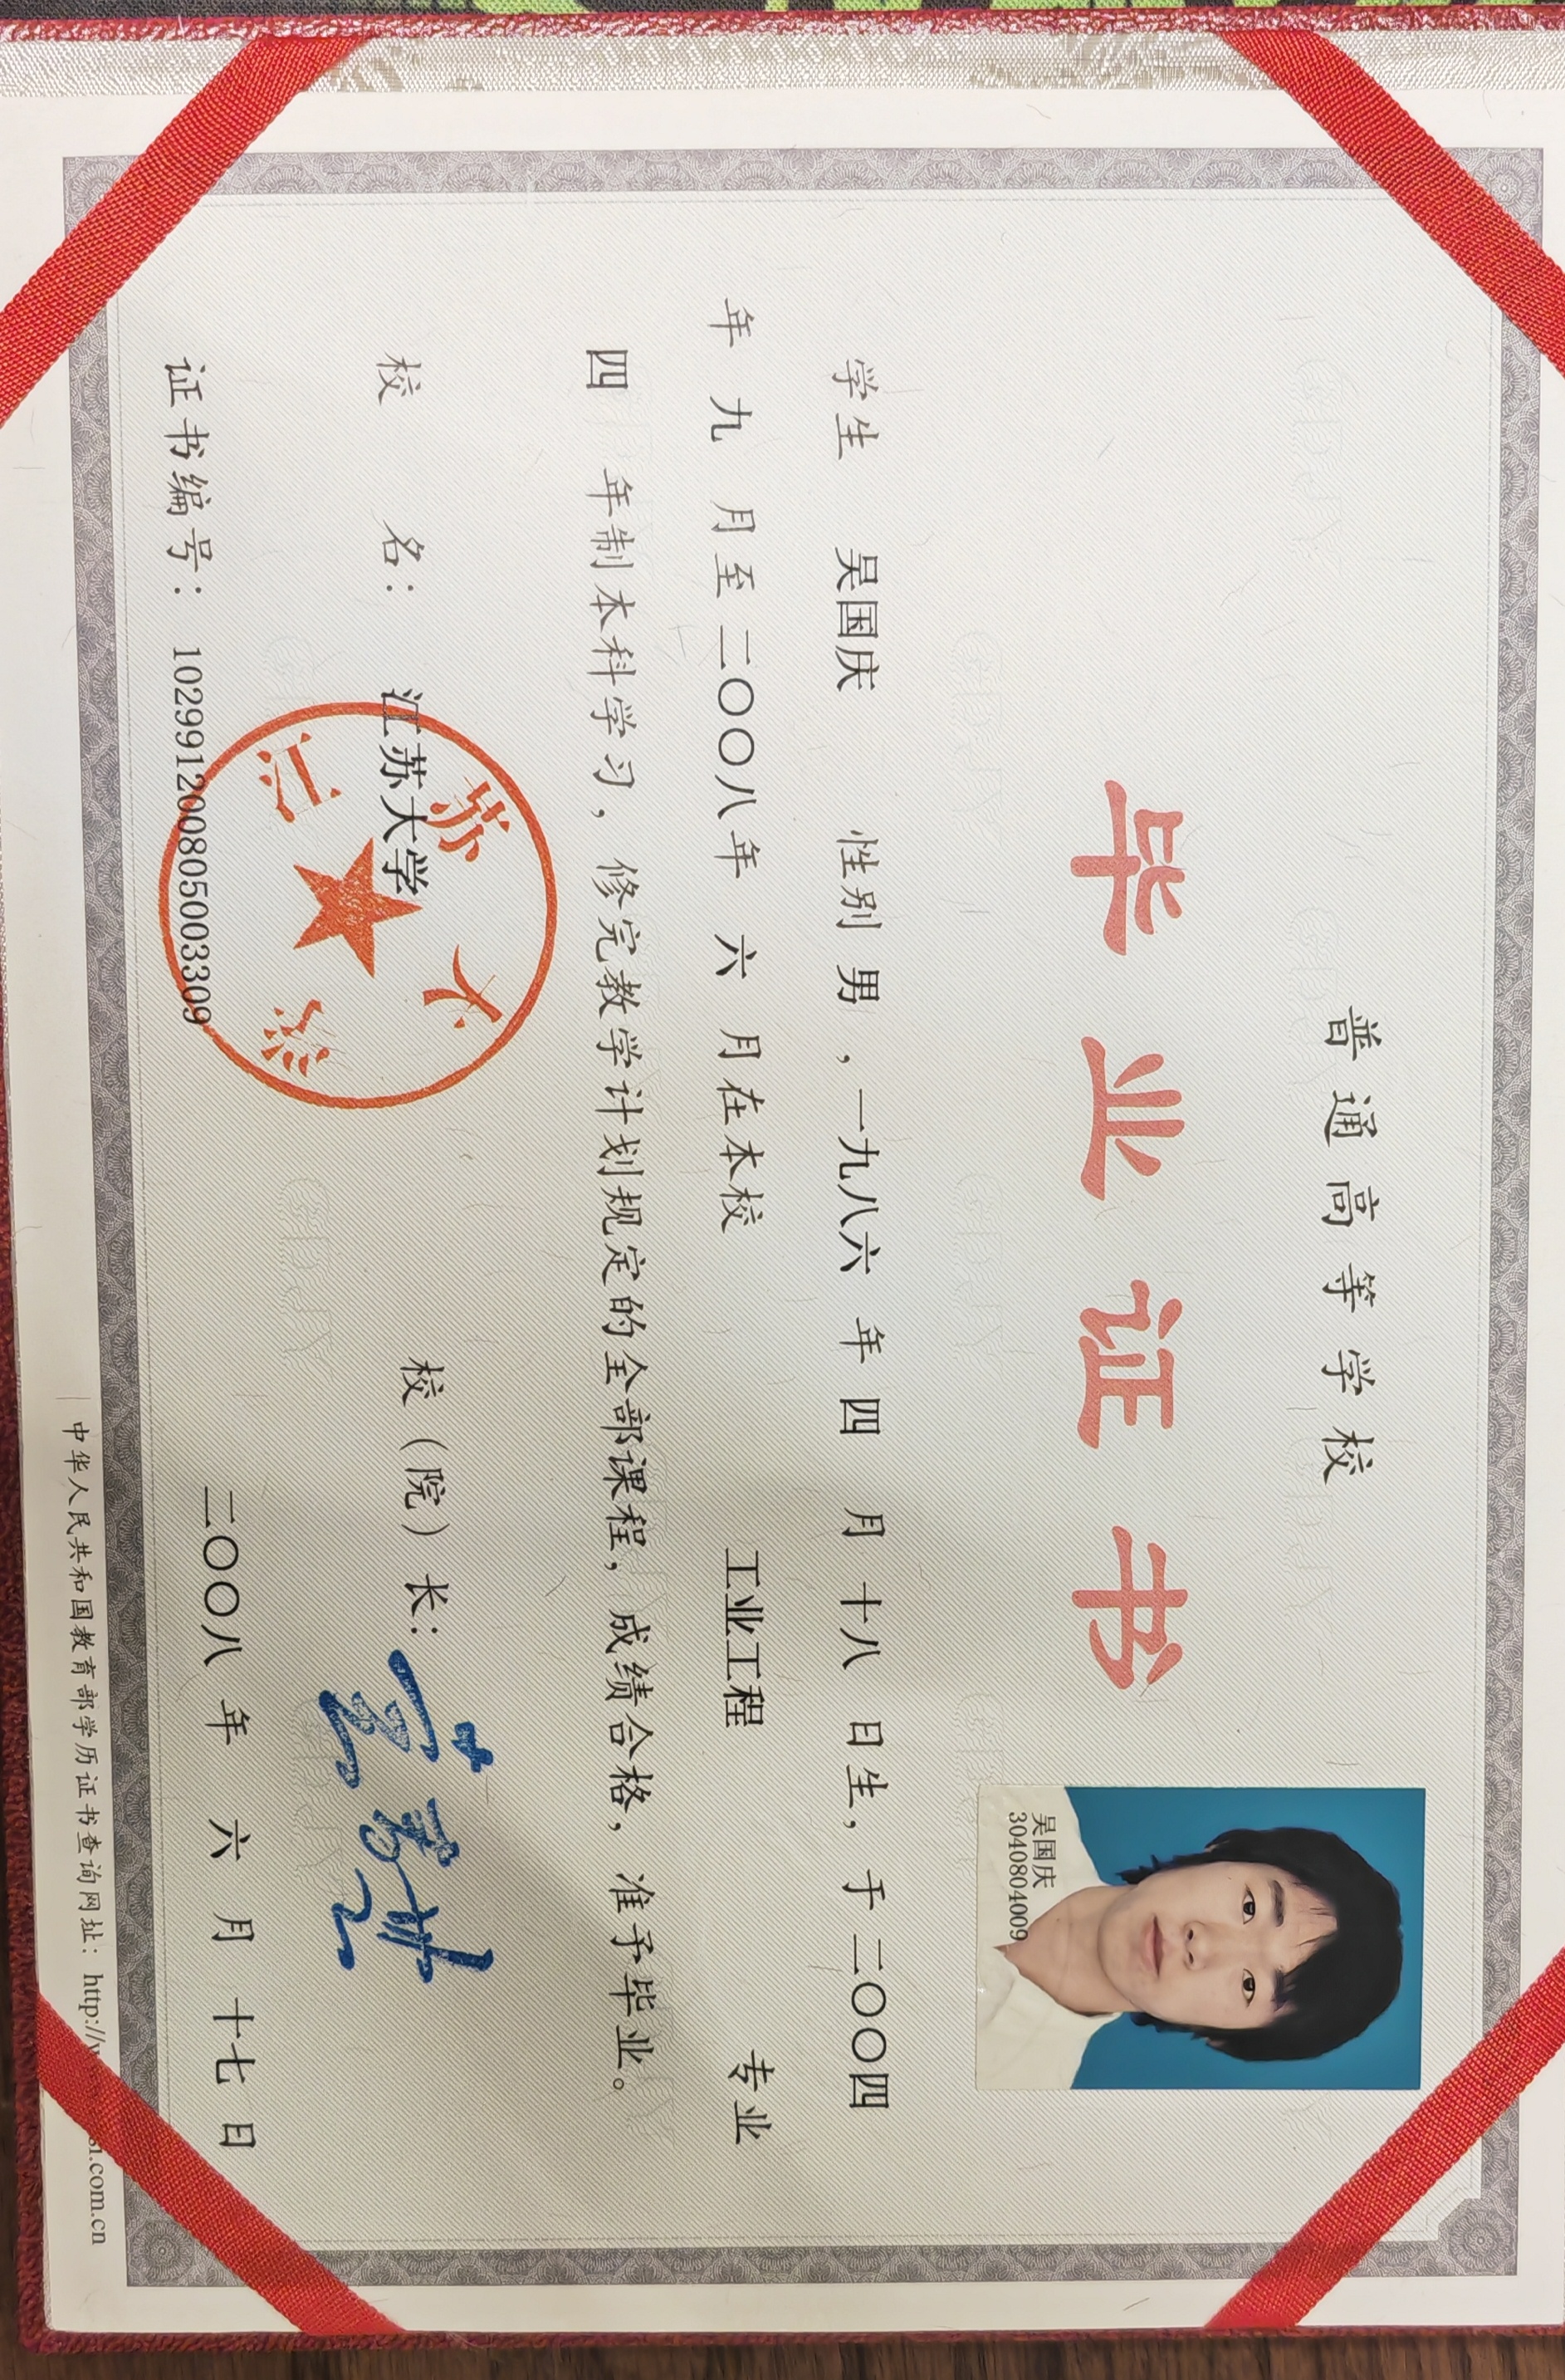 普通高等学校
毕业证书
吴国庆
3040804009
学生 吴国庆 性别 男 ，一九八六 年 四 月 十八 日生，于 二〇〇四
年 九 月至 二〇〇八年 六 月在本校 工业工程 专业
四 年制本科学习，修完教学计划规定的全部课程，成绩合格，准予毕业。
校 名： 江苏大学 校（院）长：
江苏大学
证书编号： 102991200805003309 二〇〇八 年 六 月 十七 日
中华人民共和国教育部学历证书查询网址： http://